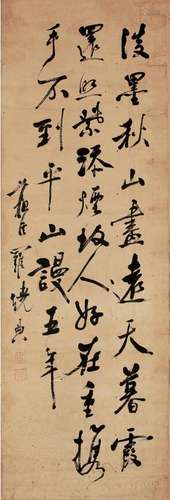 淡墨秋山畫遠天暮霞
還照紫添煙故人好在重攜
手不到平山謾五年
蘇臣羅繞典